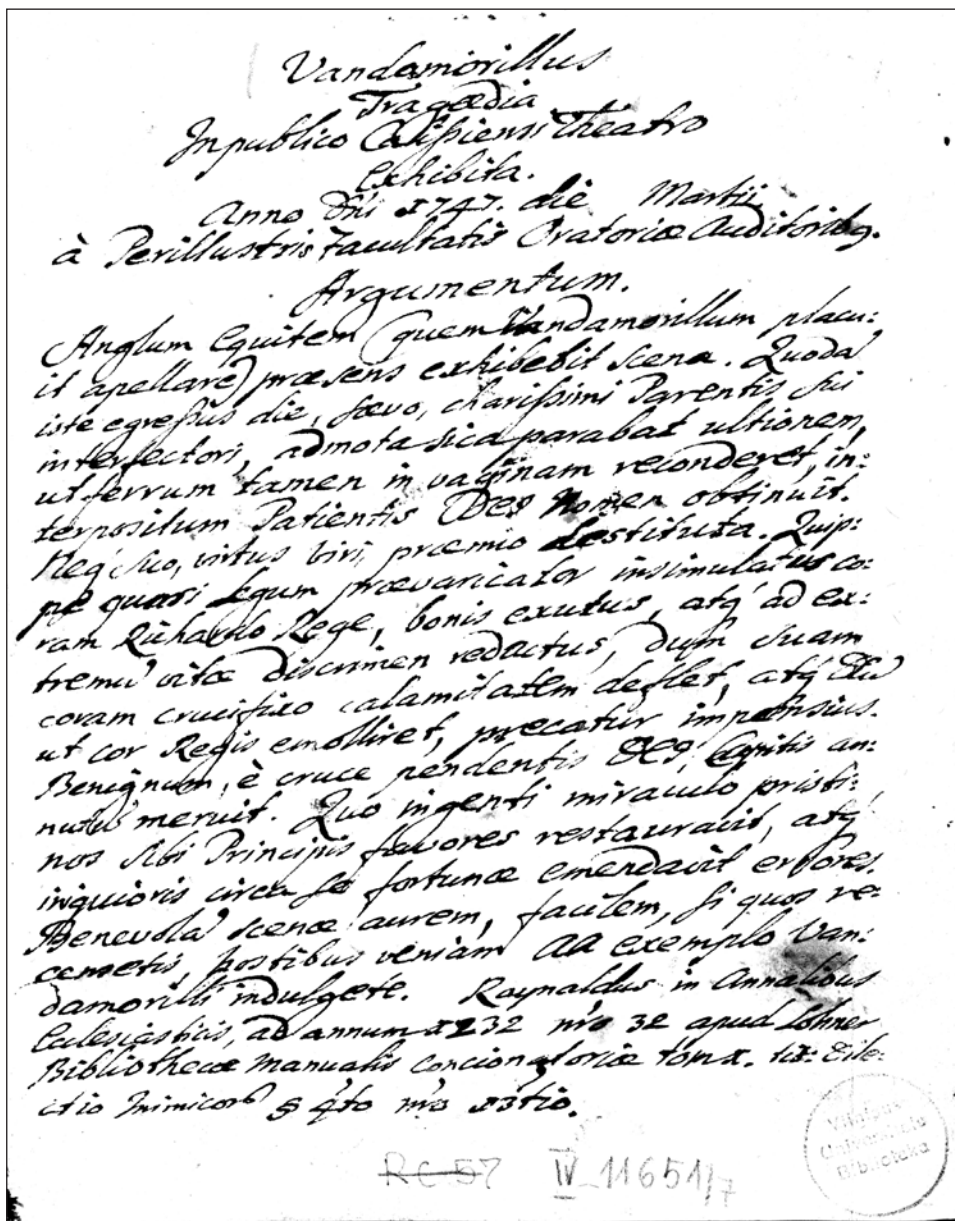 Vandamorillus
Tragœdia
In publico Calissiensi Theatro
Exhibita.
Anno Dñi 1747. die Martii
à Perillustris Facultatis Oratoriæ Auditoribq.
Argumentum.
Anglum Equitem (quem Vandamorillum placu:
it apellare) præsens exhibebit scena. Quodã
iste egressus die, sævo, charissimi Parentis sui
interfectori, admota sica parabat ultionem,
ut ferrum tamen in vaginam reconderet, in:
terpositum Patientis DEI Nomen obtinuit.
Neq suo, virtus viri, præmio destituta. Quip:
pe quasi legum prævaricator insimulatus co:
ram Richardo Rege, bonis exutus, atq ad ex:
tremũ vitæ discrimen redactus, dum suam
coram crucifixo calamitatem deflet, atq Deũ
ut cor Regis emolliret, precatur impensius.
Benignum, è cruce pendentis DEI, Capitis an:
nutũ meruit. Quo ingenti miraculo pristi:
nos sibi Principis favores restauravit, atq
iniquioris circa se fortunæ emendavit errores.
Benevolã scenæ aurem, facilem, si quos re:
censetis, hostibus veniam ad exemplo Van:
damorilli indulgete. Raynaldus in Annalibus
Eclesiasticis, ad annum 1232 nro 32 apud Lohner
Bibliothecæ manualis concionatoriæ tom 1. tit: Dile:
ctio Inimicorũ § 4to nro 13tio.
RC 57 IV 11651/7
Vilniaus
Universiteto
Biblioteka